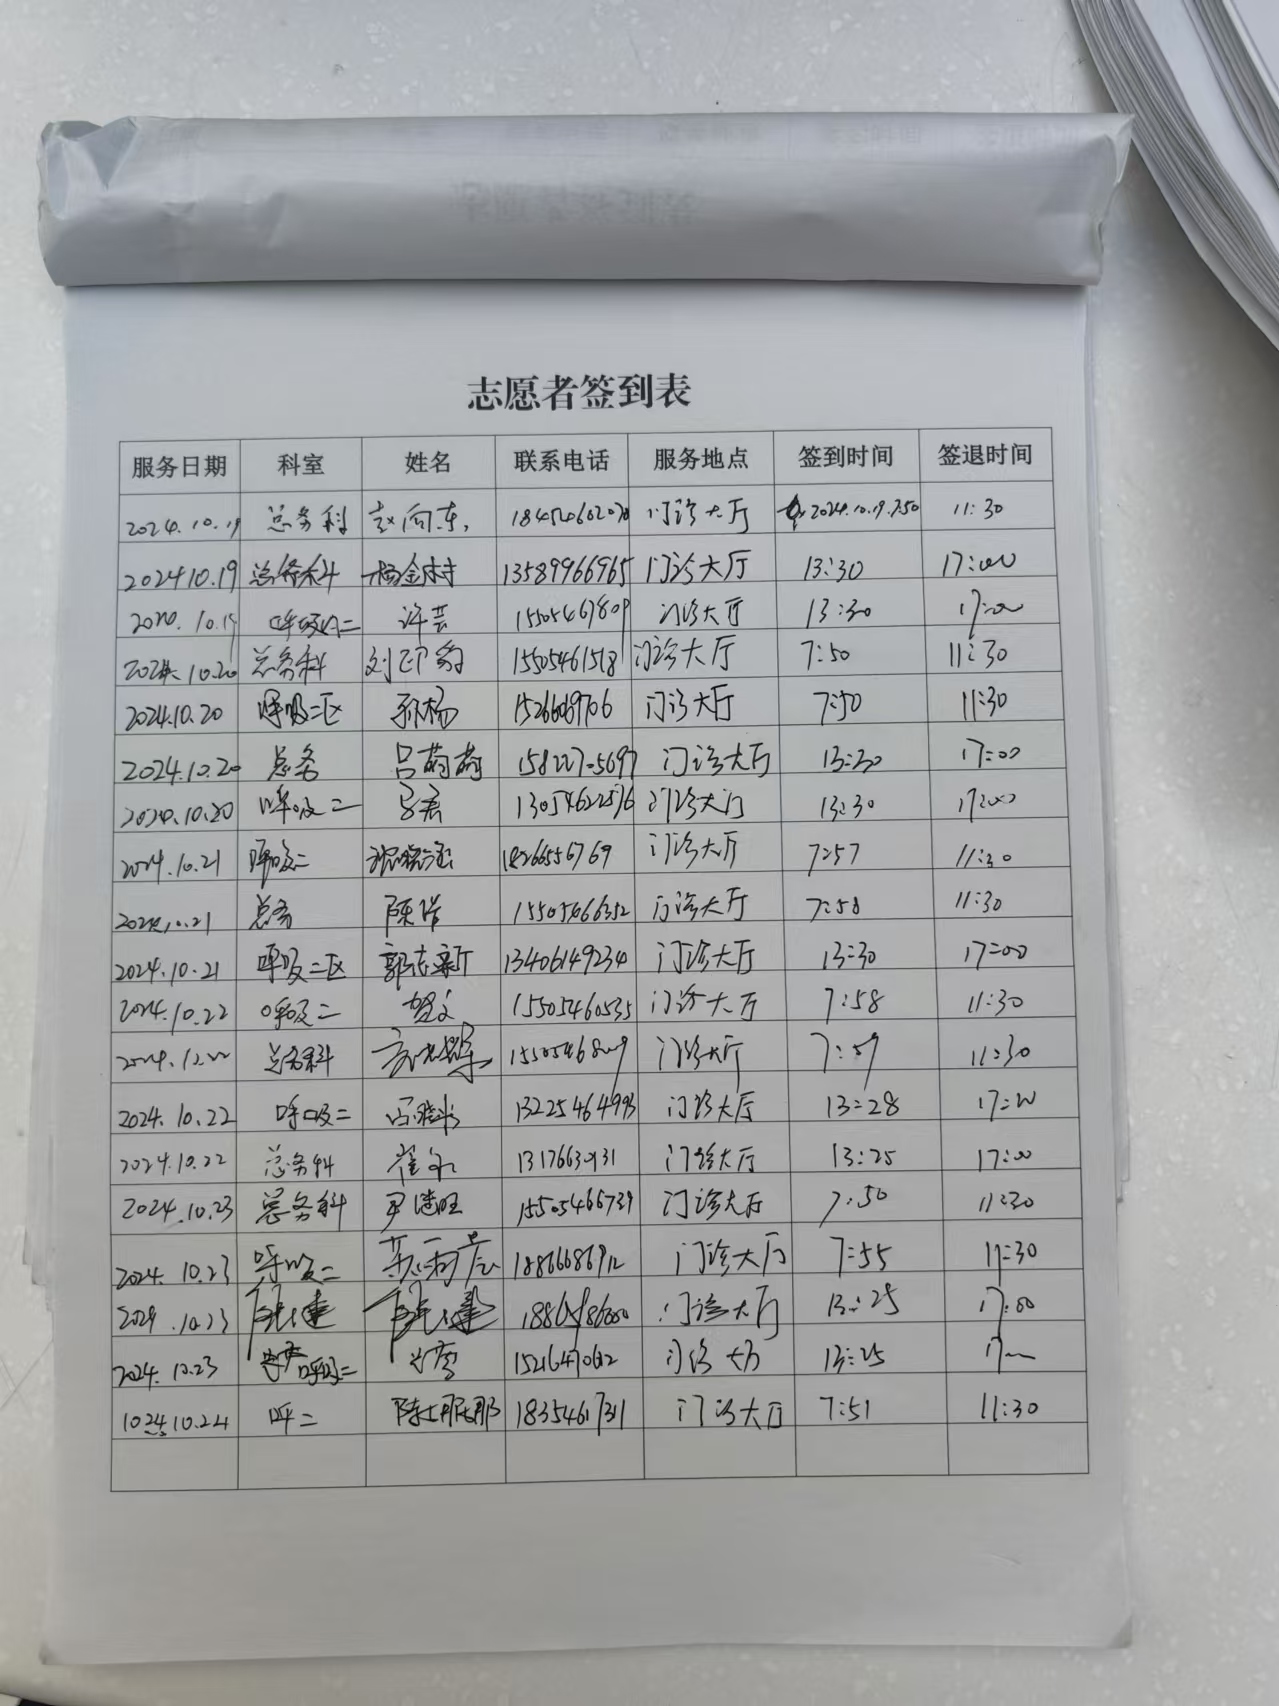 志愿者签到表
服务日期 科室 姓名 联系电话 服务地点 签到时间 签退时间
2024.10.19 总务科 赵向东 门诊大厅 2024.10.19.7.50 11:30
2024.10.19 总务科 杨金树 13589966965 门诊大厅 13:30 17:00
10.19 呼吸内二 许芸 15505467809 门诊大厅 13:30 17:00
2024.10.20 总务科 15505461518 门诊大厅 7:50 11:30
2024.10.20 呼吸二区 孙杨 15266069706 门诊大厅 7:50 11:30
2024.10.20 总务 吕萌萌 门诊大厅 13:30 17:00
10.20 呼吸二 13054622576 门诊大厅 13:30 17:00
2024.10.21 呼吸二 18266556769 门诊大厅 7:57 11:30
2024.10.21 总务 陈 15505466352 门诊大厅 7:58 11:30
2024.10.21 呼吸二区 郭志新 13406149234 门诊大厅 13:30 17:00
2024.10.22 呼吸二 15505460535 门诊大厅 7:58 11:30
总务科 门诊大厅 7:59 11:30
2024.10.22 呼吸二 13225464993 门诊大厅 13:28 17:00
2024.10.22 总务科 崔 门诊大厅 13:25 17:00
2024.10.23 总务科 尹 15505466739 门诊大厅 7:50 11:30
2024.10.23 呼吸二 18866686912 门诊大厅 7:55 11:30
2024.10.23 门诊大厅 13:25 17:00
2024.10.23 呼吸二 15216470612 门诊大厅 13:25
1024.10.24 呼二 陈娜娜 18354617311 门诊大厅 7:51 11:30